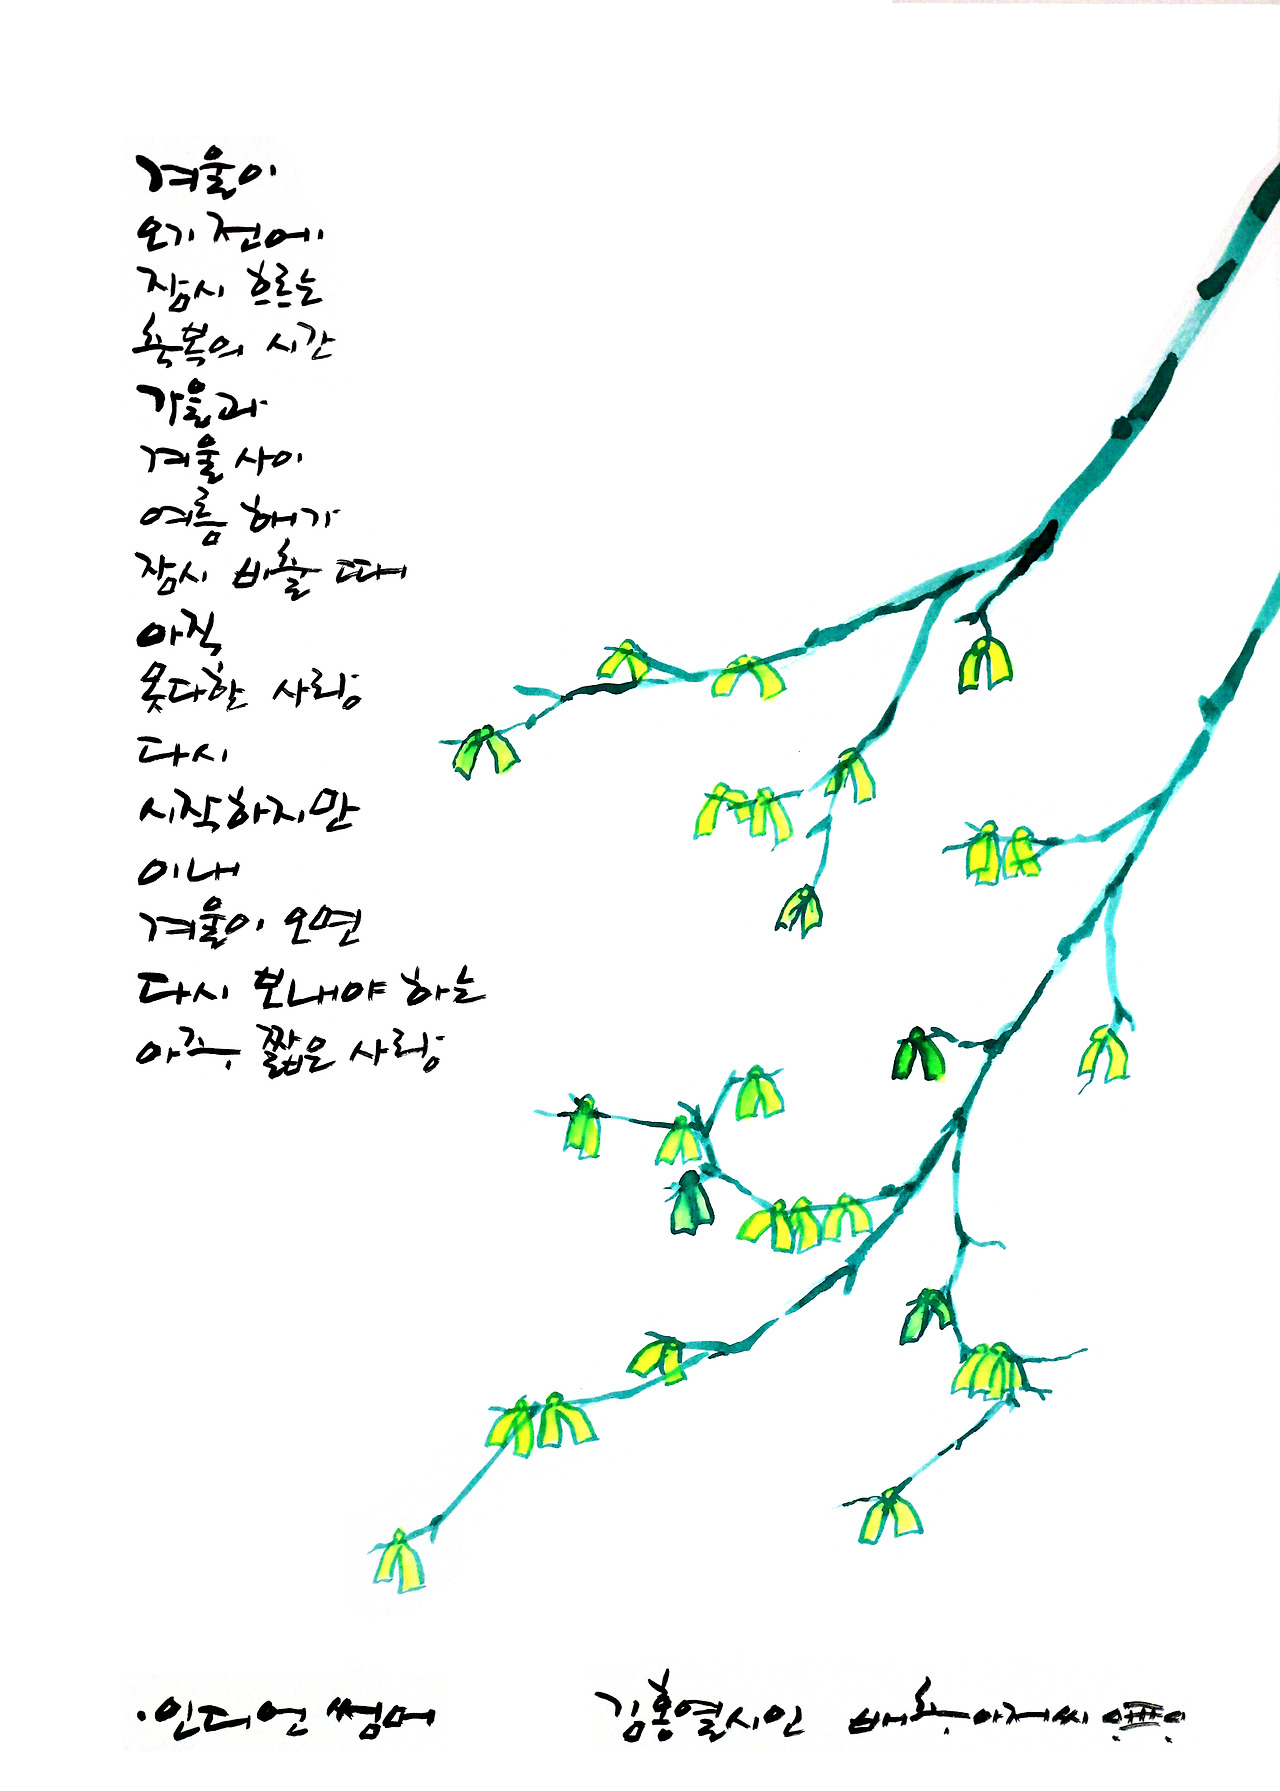 겨울이
오기 전에
잠시 흐르는
축복의 시간
가을과
겨울 사이
여름 해가
잠시 비출 때
아직
못다한 사랑
다시
시작하지만
이내
겨울이 오면
다시 보내야 하는
아주 짧은 사랑
·인디언 썸머
김홍열시인 배추아저씨